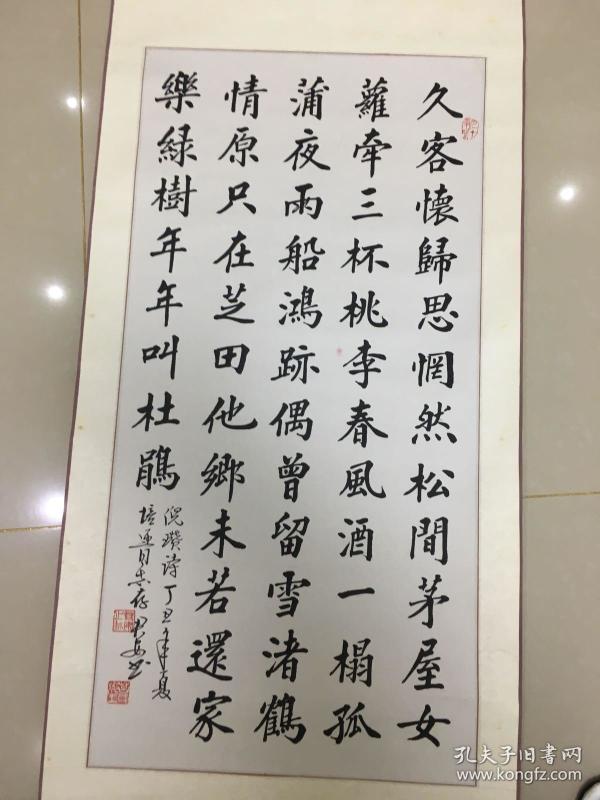 久客懷歸思惘然松間茅屋女
蘿牽三杯桃李春風酒一榻孤
蒲夜雨船鴻跡偶曾留雪渚鶴
情原只在芝田他鄉未若還家
樂綠樹年年叫杜鵑
倪瓚詩丁丑年夏
培同志存书
孔夫子旧书网
www.kongfz.com